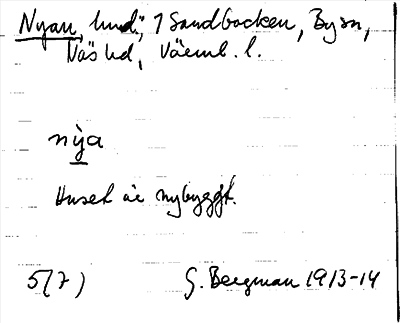 Nyan, hmd, 1 Sandbacken, By sn,
Näs hd, Värml. l.
nỳa
Huset är nybyggt.
5(7) G. Bergman 1913-14